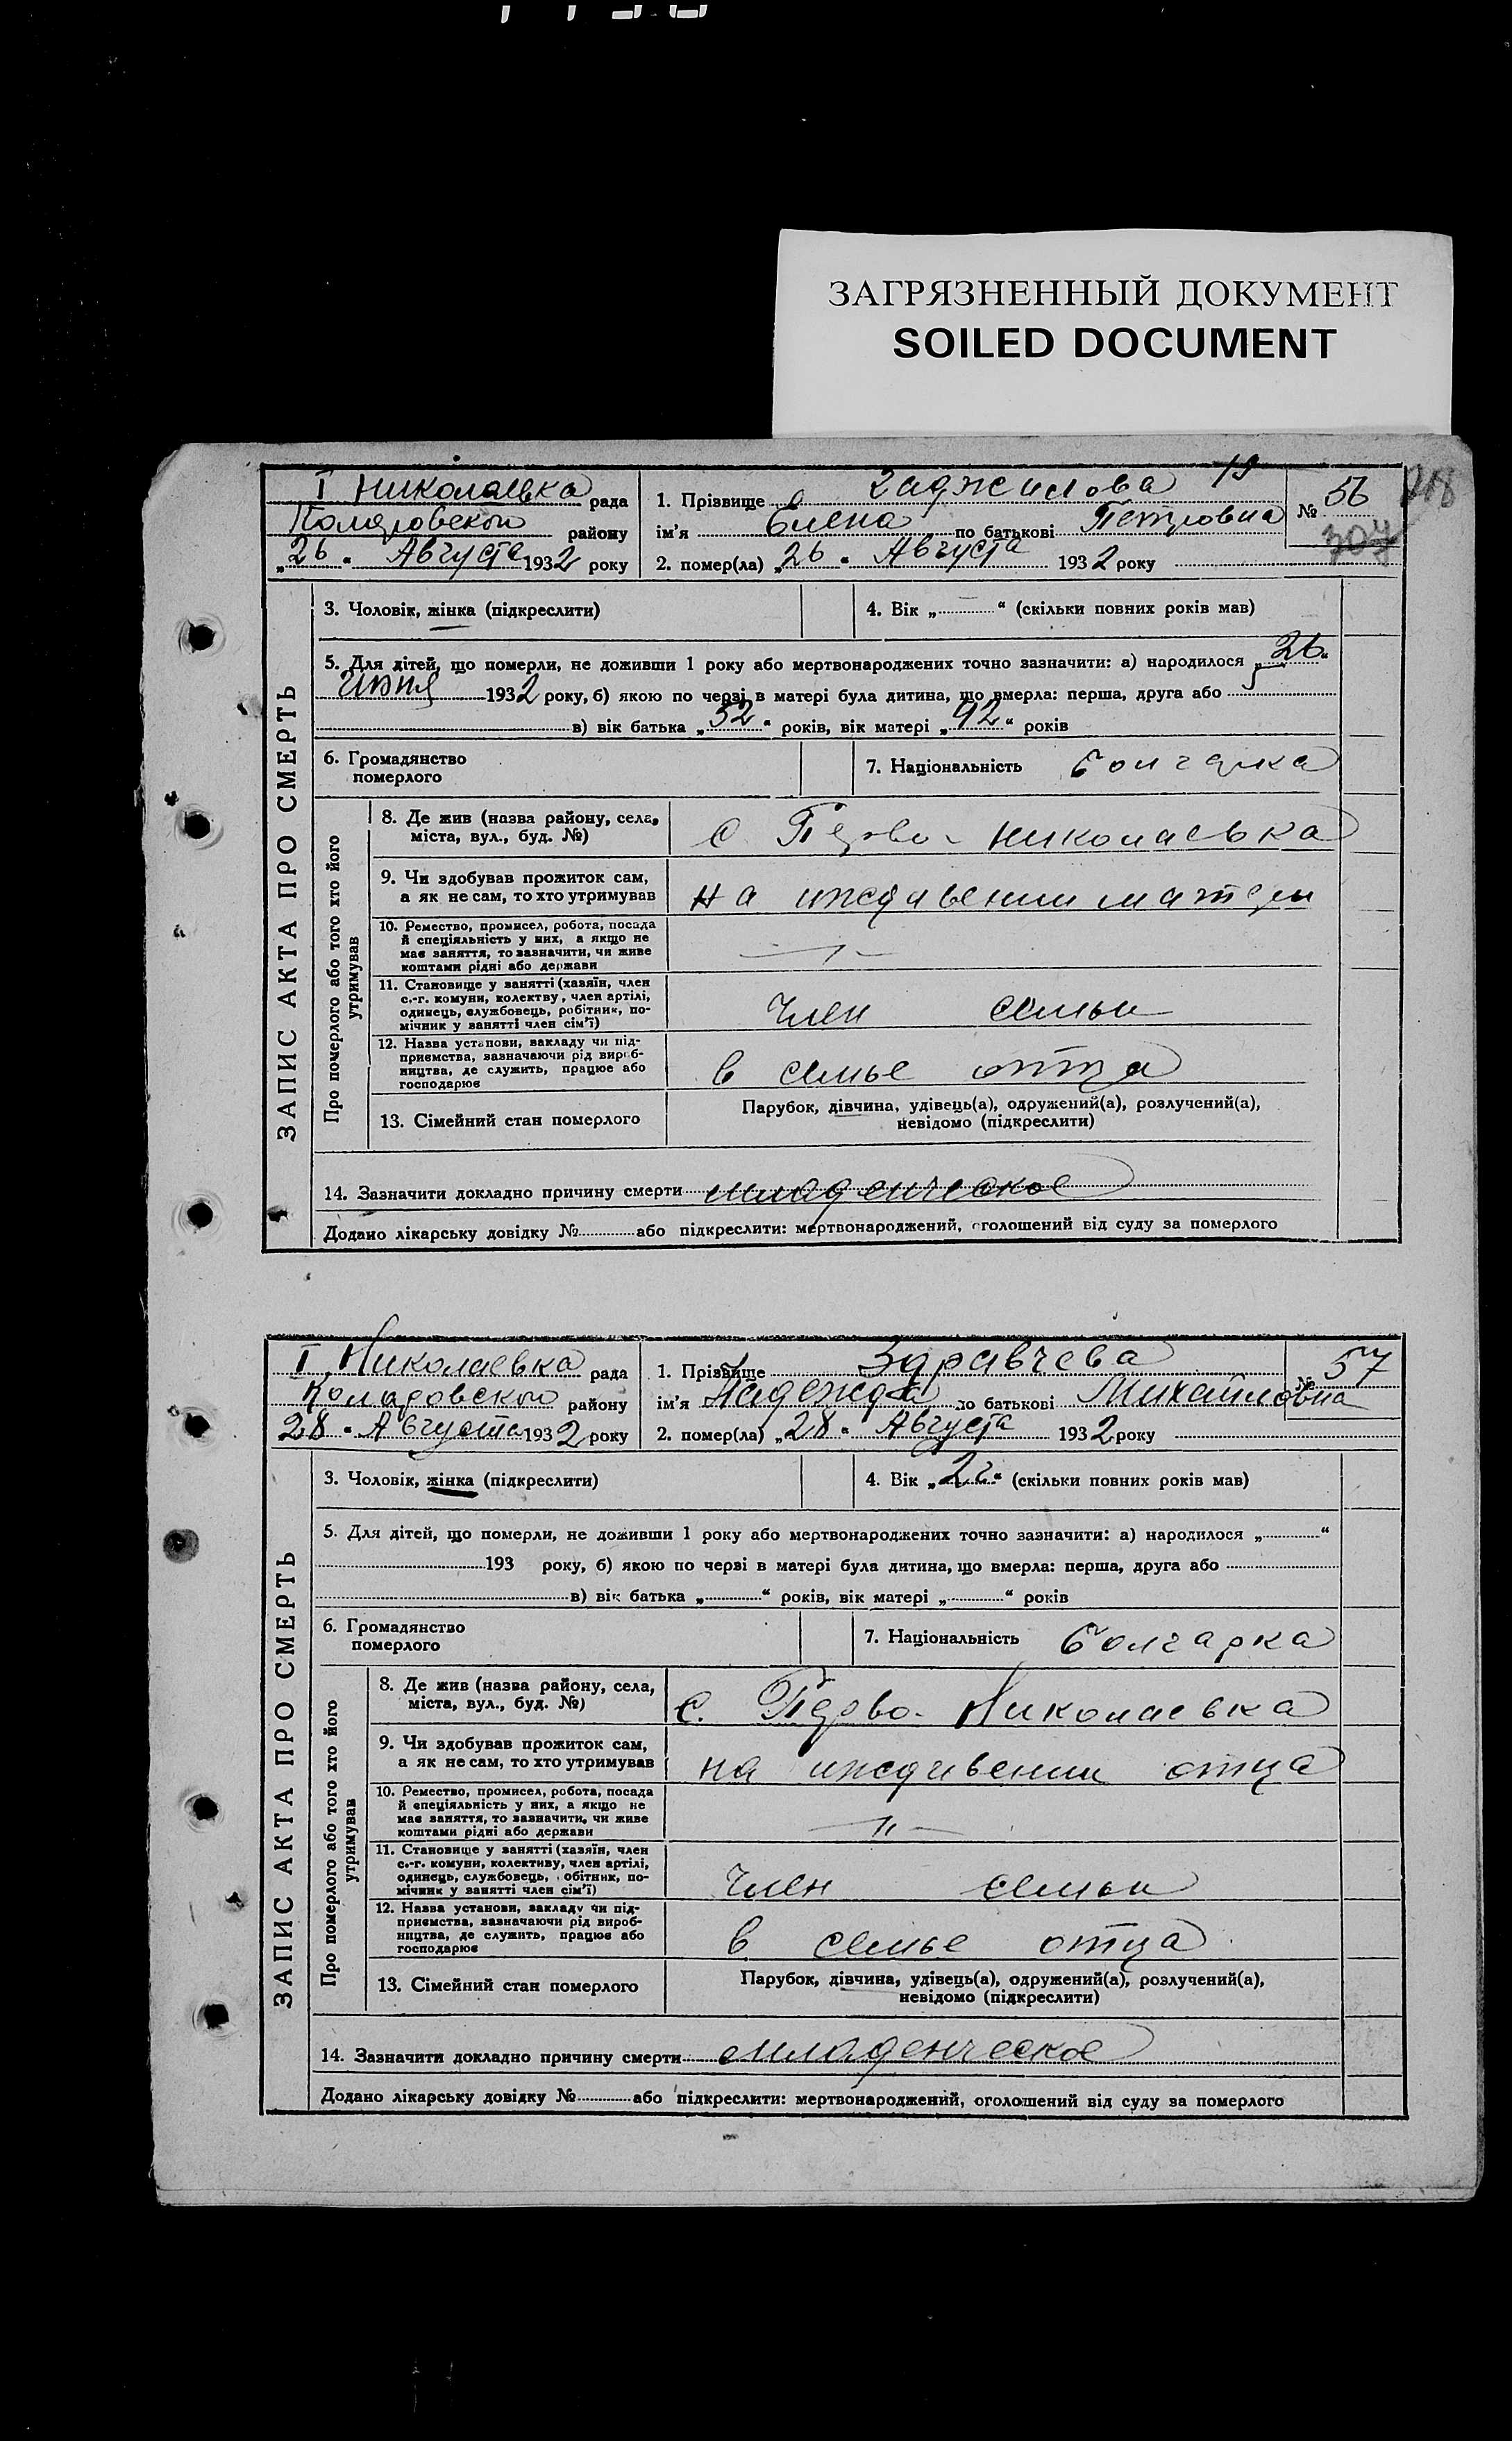 ЗАГРЯЗНЕННЫЙ ДОКУМЕНТ
SOILED DOCUMENT
I Николаевка рада
районy
„26“ Августа 1932 року
1. Прізвище Гаджилова 19
ім'я Елена по батькові Петровна
2. помер(ла) „26“ Августа 1932 року
№ 56
307
ЗАПИС АКТА ПРО СМЕРТЬ
3. Чоловік, жінка (підкреслити)
4. Вік „ “ (скільки повних років мав)
5. Для дітей, що померли, не доживши 1 року або мертвонароджених точно зазначити: а) народилося „26“
Июня 1932 року, б) якою по черзі в матері була дитина, що вмерла: перша, друга або 5
в) вік батька „52“ років, вік матері „42“ років
6. Громадянство
померлого
7. Національність болгарка
Про померлого або того хто його
утримував
8. Де жив (назва району, села,
міста, вул., буд. №)
с. Перво-Николаевка
9. Чи здобував прожиток сам,
а як не сам, то хто утримував
на иждивении матери
10. Ремество, промисел, робота, посада
й спеціяльність у них, а якщо не
має заняття, то зазначити, чи живе
коштами рідні або держави
11. Становище у занятті (хазяїн, член
с.-г. комуни, колективу, член артілі,
одинець, службовець, робітник, по-
мічник у занятті член сім'ї)
член семьи
12. Назва установи, закладу чи під-
приємства, зазначаючи рід вироб-
ництва, де служить, працює або
господарює
в семье отца
13. Сімейний стан померлого
Парубок, дівчина, удівець(а), одружений(а), розлучений(а),
невідомо (підкреслити)
14. Зазначити докладно причину смерти младенческое
Додано лікарську довідку № або підкреслити: мертвонароджений, оголошений від суду за померлого
I Николаевка рада
Коларовского району
28 “ Августа 1932 року
1. Прізвище Здравчева
ім'я Надежда по батькові Михайловна
2. помер(ла) „28“ Августа 1932 року
№ 57
ЗАПИС АКТА ПРО СМЕРТЬ
3. Чоловік, жінка (підкреслити)
4. Вік „2г“ (скільки повних років мав)
5. Для дітей, що померли, не доживши 1 року або мертвонароджених точно зазначити: а) народилося „ “
193 року, б) якою по черзі в матері була дитина, що вмерла: перша, друга або
в) вік батька „ “ років, вік матері „ “ років
6. Громадянство
померлого
7. Національність болгарка
Про померлого або того хто його
утримував
8. Де жив (назва району, села,
міста, вул., буд. №)
с. Перво-Николаевка
9. Чи здобував прожиток сам,
а як не сам, то хто утримував
на иждивении отца
10. Ремество, промисел, робота, посада
й спеціяльність у них, а якщо не
має заняття, то зазначити, чи живе
коштами рідні або держави
— " —
11. Становище у занятті (хазяїн, член
с.-г. комуни, колективу, член артілі,
одинець, службовець, робітник, по-
мічник у занятті член сім'ї)
член семьи
12. Назва установи, закладу чи під-
приємства, зазначаючи рід вироб-
ництва, де служить, працює або
господарює
в семье отца
13. Сімейний стан померлого
Парубок, дівчина, удівець(а), одружений(а), розлучений(а),
невідомо (підкреслити)
14. Зазначити докладно причину смерти младенческое
Додано лікарську довідку № або підкреслити: мертвонароджений, оголошений від суду за померлого